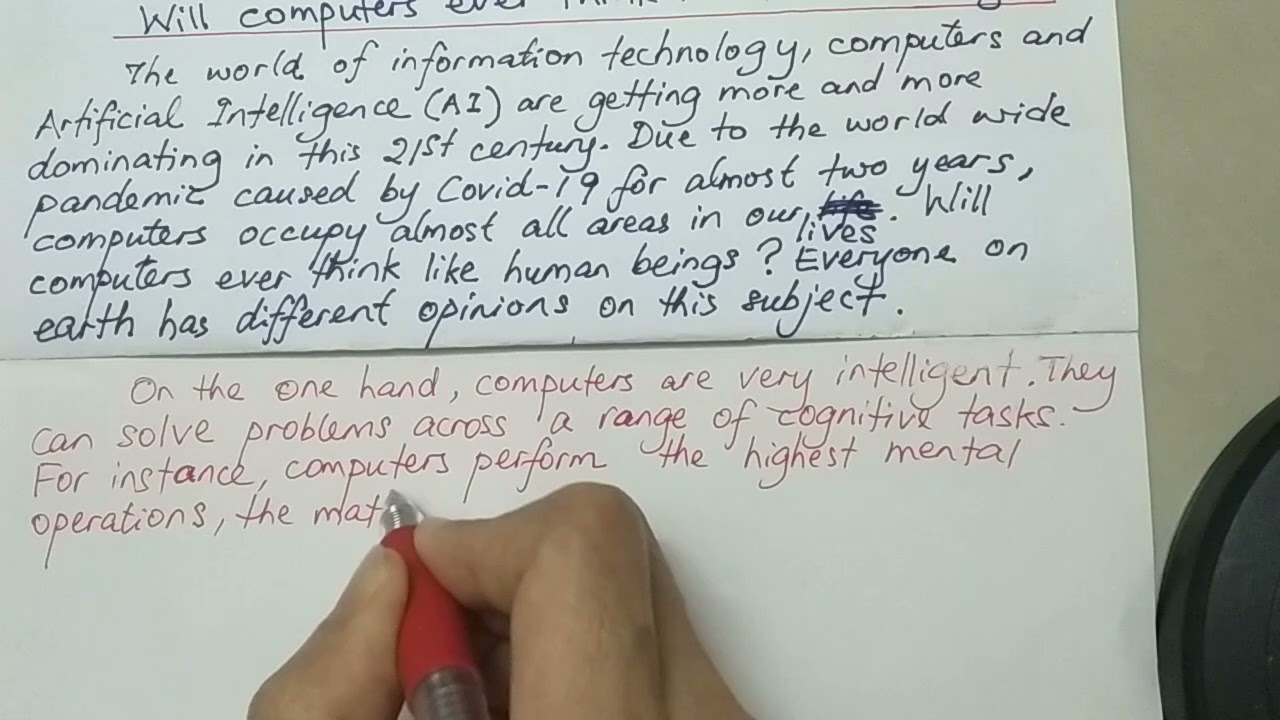 Will computers ever think
The world of information technology, computers and
Artificial Intelligence (AI) are getting more and more
dominating in this 21st century. Due to the world wide
pandemic caused by Covid-19 for almost two years,
computers occupy almost all areas in our life. Will
lives
computers ever think like human beings? Everyone on
earth has different opinions on this subject.
On the one hand, computers are very intelligent. They
can solve problems across a range of cognitive tasks.
For instance, computers perform the highest mental
operations, the mat